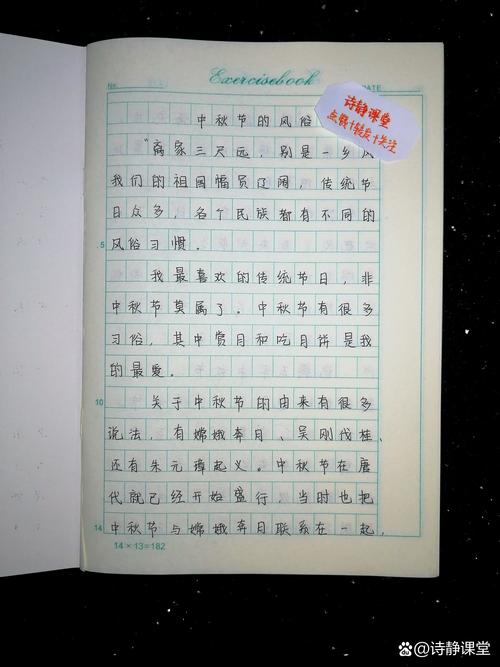 Exercisebook
No.
DATE
诗静课堂
点赞+转发+关注
中秋节的风俗
"离家三尺远,别是一乡风
我们的祖国幅员辽阔,传统节
日众多,各个民族都有不同的
5 风俗习惯。
我最喜欢的传统节日,非
中秋节莫属了。中秋节有很多
习俗,其中赏月和吃月饼是我
的最爱。
10 关于中秋节的由来有很多
说法,有嫦娥奔月、吴刚伐桂、
还有朱元璋起义。中秋节在唐
代就已经开始盛行,当时也把
14 中秋节与嫦娥奔月联系在一起,
14×13=182
@诗静课堂